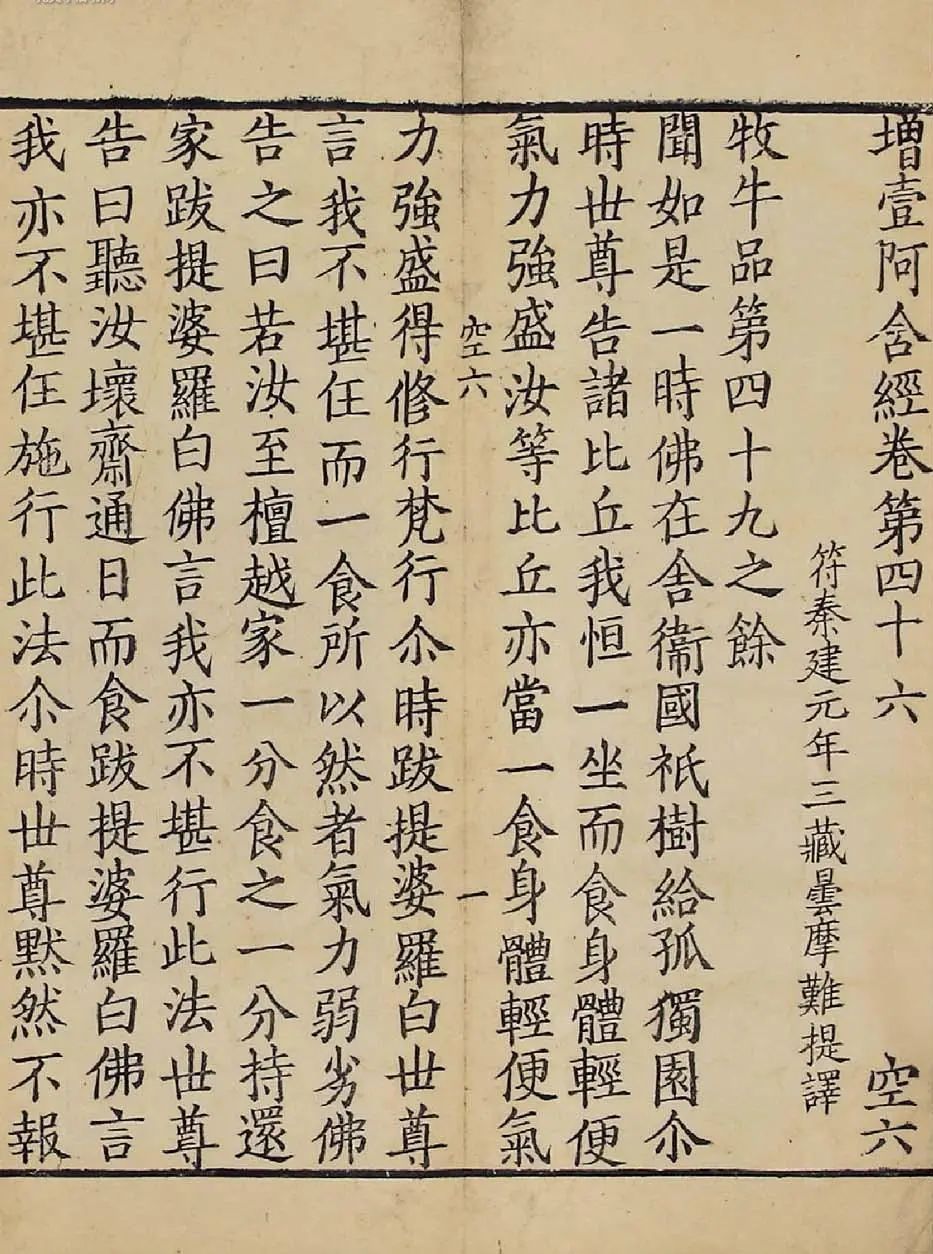 增壹阿含經卷第四十六　空六
符秦建元年三藏曇摩難提譯
牧牛品第四十九之餘
聞如是一時佛在舍衛國祇樹給孤獨園尒
時世尊告諸比丘我恒一坐而食身體輕便
氣力強盛汝等比丘亦當一食身體輕便氣
空六　一
力強盛得修行梵行尒時跋提婆羅白世尊
言我不堪任而一食所以然者氣力弱劣佛
告之曰若汝至檀越家一分食之一分持還
家跋提婆羅白佛言我亦不堪行此法世尊
告曰聽汝壞齋通日而食跋提婆羅白佛言
我亦不堪任施行此法尒時世尊默然不報